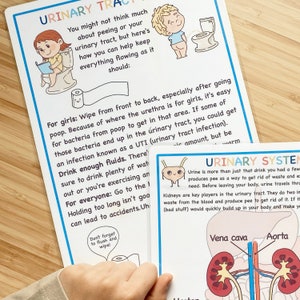 URINARY TRACT
You might not think much
about peeing or your
urinary tract, but here's
how you can help keep
everything flowing as it
should:
For girls: Wipe from front to back, especially after going
poop. Because of where the urethra is for girls, it's easy
for bacteria from poop to get in that area. If some of
those bacteria end up in the urinary tract, you could get
an infection known as a UTI (urinary tract infection).
Drink enough fluids. There's
amount, but be
sure to drink plenty of wat
out or you're exercising an
For everyone: Go to the
Holding too long isn't go
can lead to accidents. Uh
Don't forget
to flush and
wash!
URINARY SYSTEM
Urine is more than just that drink you had a few
produces pee as a way to get rid of waste and e
need. Before leaving your body, urine travels thro
Kidneys are key players in the urinary tract. They do two i
waste from the blood and produce pee to get rid of it. If
(bad stuff) would quickly build up in your body and make y
Vena cava
Aorta